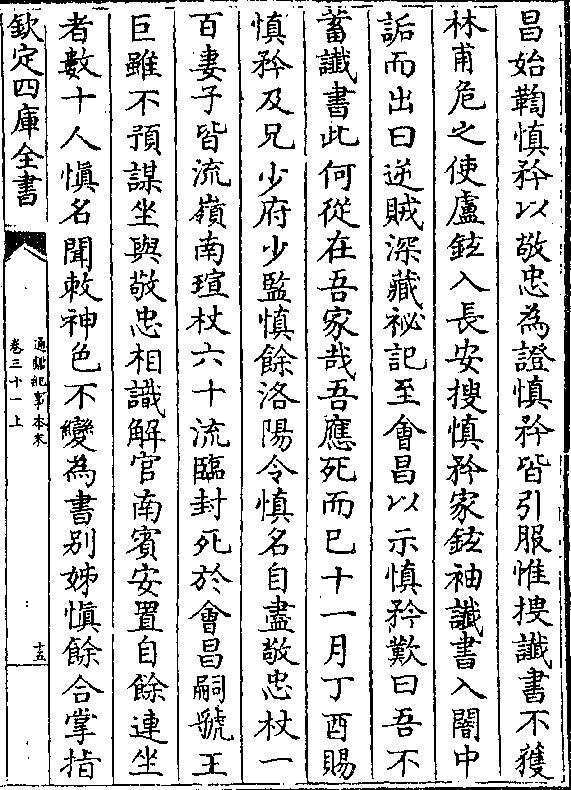 昌始鞫慎矜以敬忠為證慎矜皆引服惟搜讖書不獲
林甫危之使盧鉉入長安搜慎矜家鉉袖讖書入闇中
詬而出曰逆賊深藏祕記至會昌以示慎矜歎曰吾不
蓄讖書此何從在吾家哉吾應死而已十一月丁酉賜
慎矜及兄少府少監慎餘洛陽令慎名自盡敬忠杖一
百妻子皆流嶺南瑄杖六十流臨封死於會昌嗣虢王
巨雖不預謀坐與敬忠相識解官南賓安置自餘連坐
者數十人慎名聞敕神色不變為書別姊慎餘合掌指
欽定四庫全書
通鑑紀事本末
卷三十一上
十五